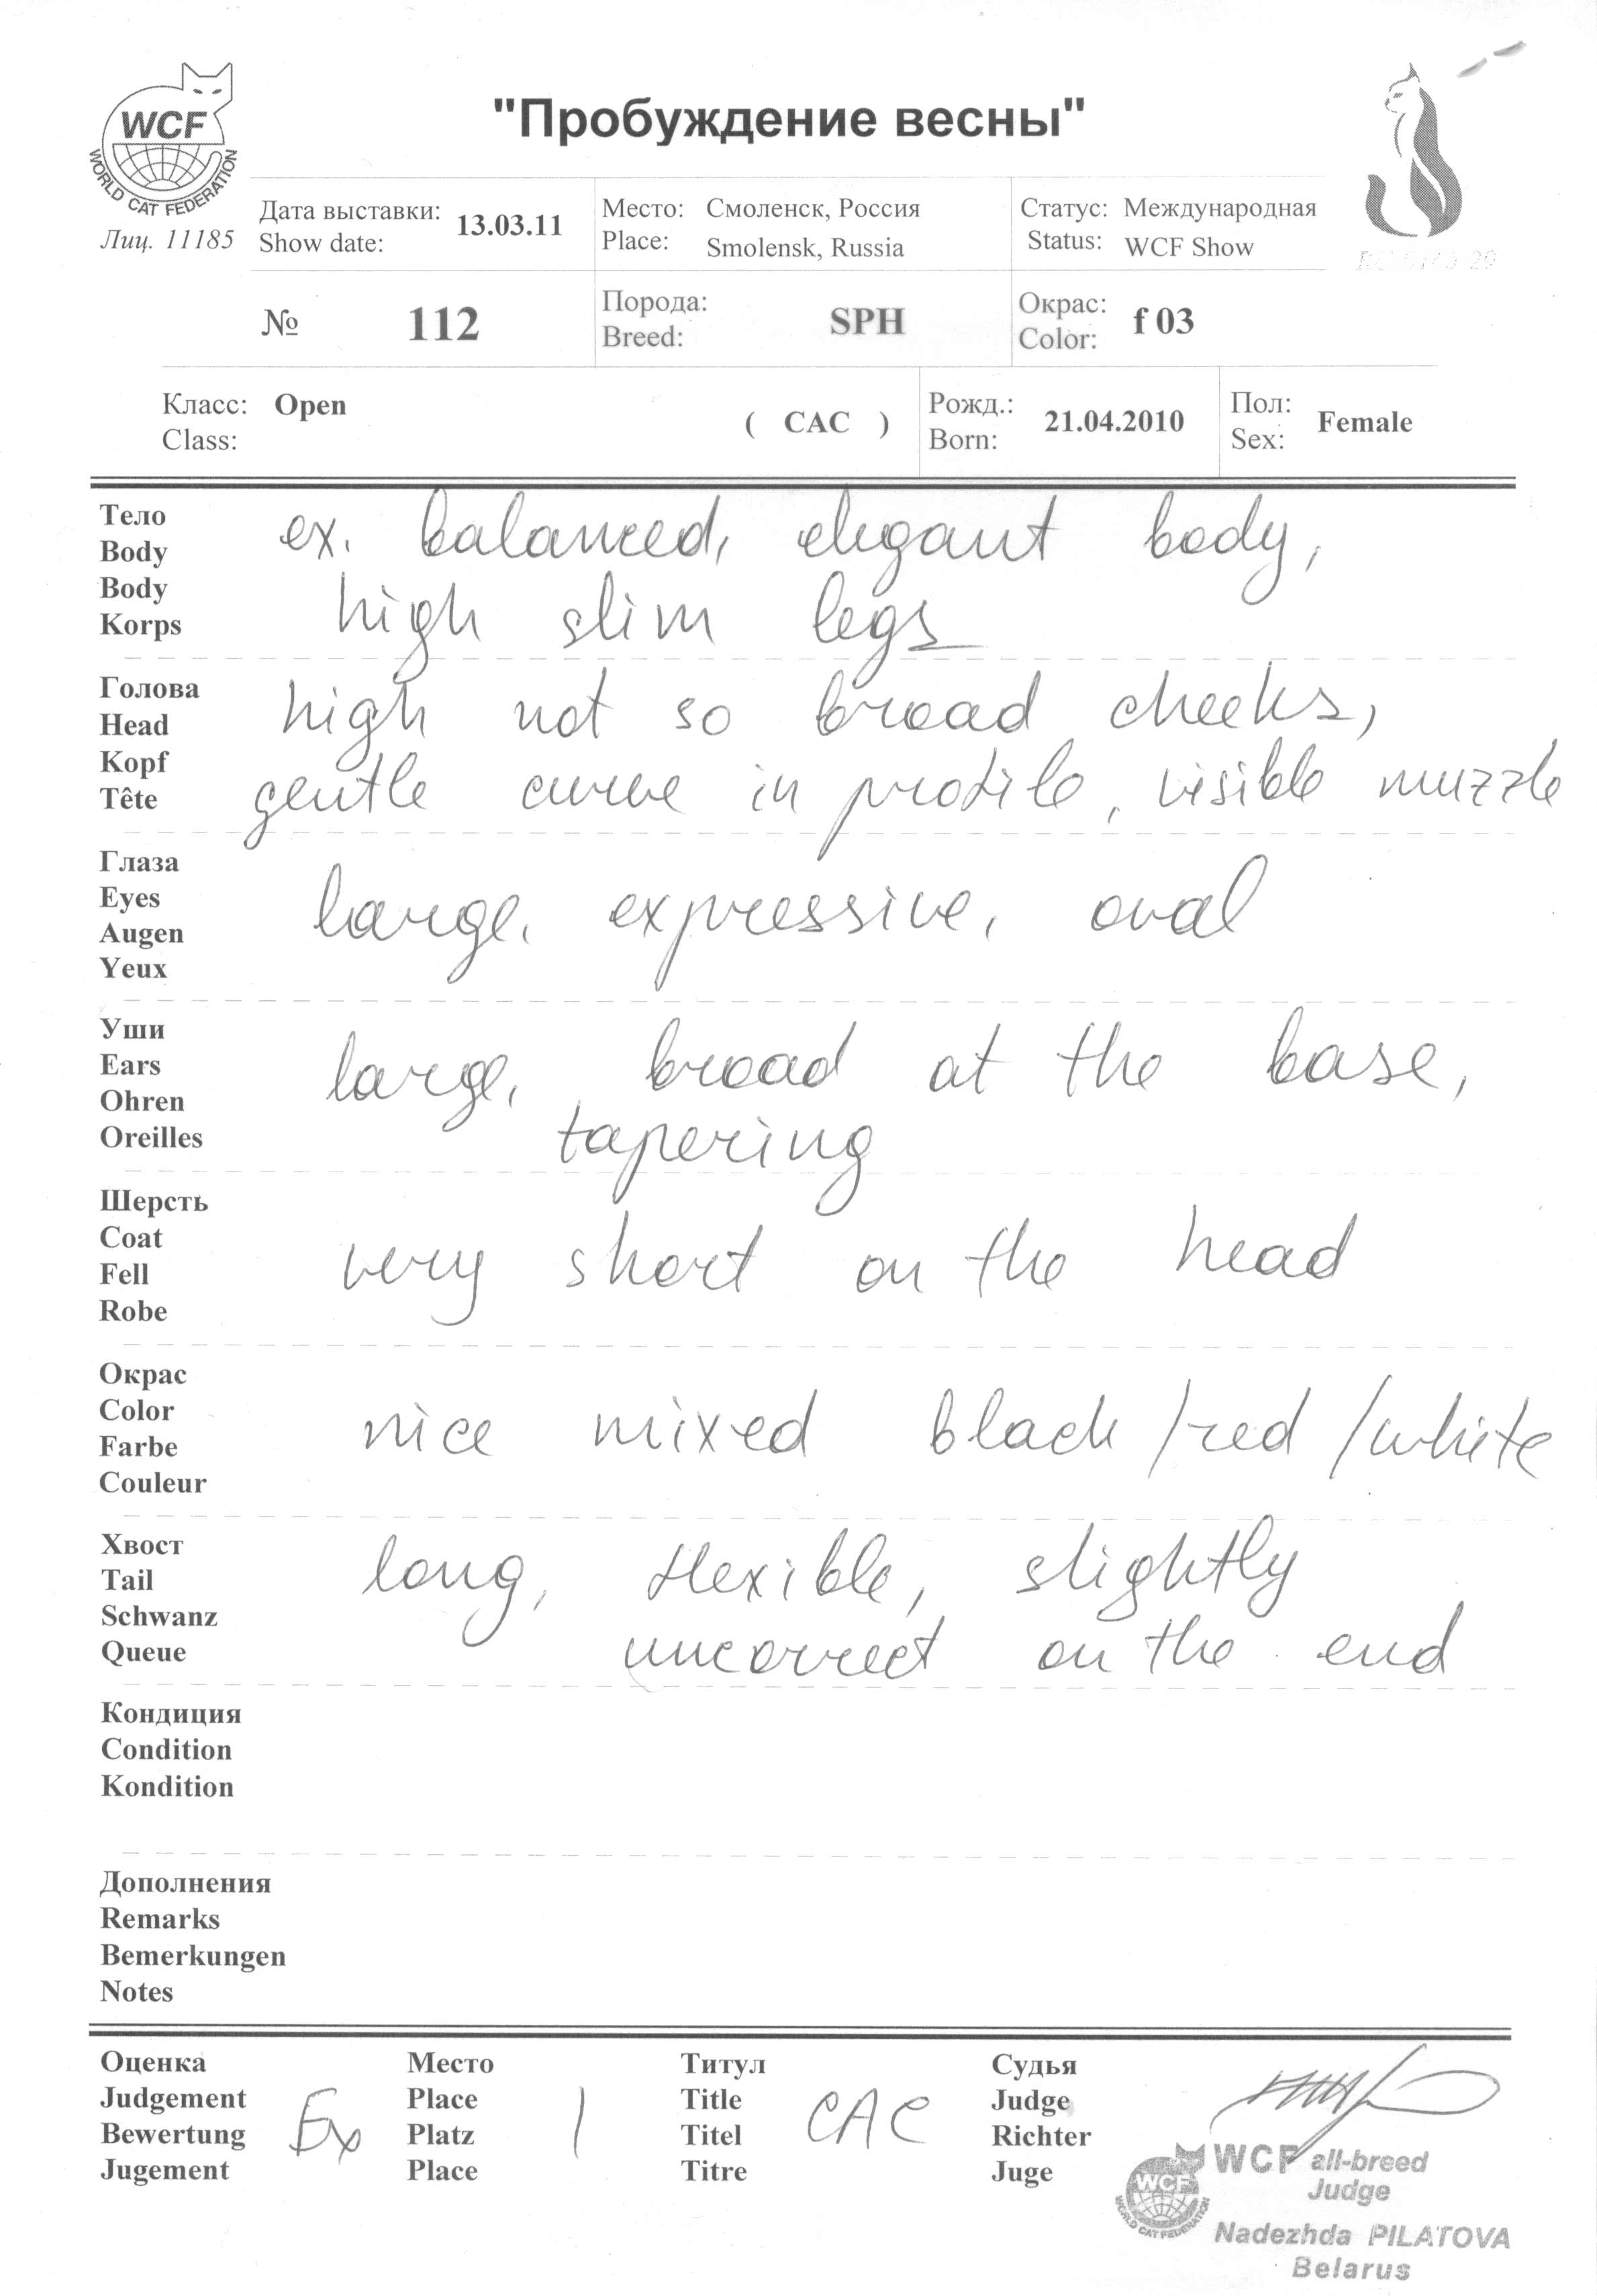 WCF
WORLD CAT FEDERATION
Лиц. 11185
"Пробуждение весны"
Дата выставки: 13.03.11
Show date:
Место: Смоленск, Россия
Place: Smolensk, Russia
Статус: Международная
Status: WCF Show
№ 112
Порода:
Breed: SPH
Окрас:
Color: f 03
Класс: Open
Class:
( CAC )
Рожд.:
Born: 21.04.2010
Пол:
Sex: Female
Тело
Body
Body
Korps
ex. balanced, elegant body,
high slim legs
Голова
Head
Kopf
Tête
high not so broad cheeks,
gentle curve in profile, visible muzzle
Глаза
Eyes
Augen
Yeux
large, expressive, oval
Уши
Ears
Ohren
Oreilles
large, broad at the base,
tapering
Шерсть
Coat
Fell
Robe
very short on the head
Окрас
Color
Farbe
Couleur
nice mixed black/red/white
Хвост
Tail
Schwanz
Queue
long, flexible, slightly
uncorrect on the end
Кондиция
Condition
Kondition
Дополнения
Remarks
Bemerkungen
Notes
Оценка
Judgement
Bewertung
Jugement
Ex
Место
Place
Platz
Place
1
Титул
Title
Titel
Titre
CAC
Судья
Judge
Richter
Juge
WCF all-breed
Judge
Nadezhda PILATOVA
Belarus
WCF
WORLD CAT FEDERATION